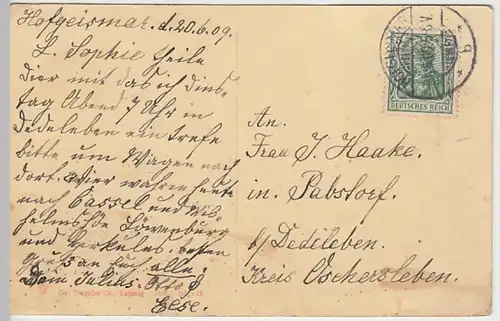 Hofgeismar. d. 20.6.09.
L. Sophie theile
Dier mit das ich dins-
tag Abend 7 Uhr in
Dedeleben ein trefe
bitte um Wagen nach
dort. Wier wahren heute
nach Cassel und Wil-
helmshöe Löwenburg
und Herkules. besten
Gruß an Euch alle.
Dein Julius. Otto &
Else.
DEUTSCHES REICH
An.
Frau J. Haake.
in. Pabstorf.
b/ Dedeleben.
Kreis Oschersleben.